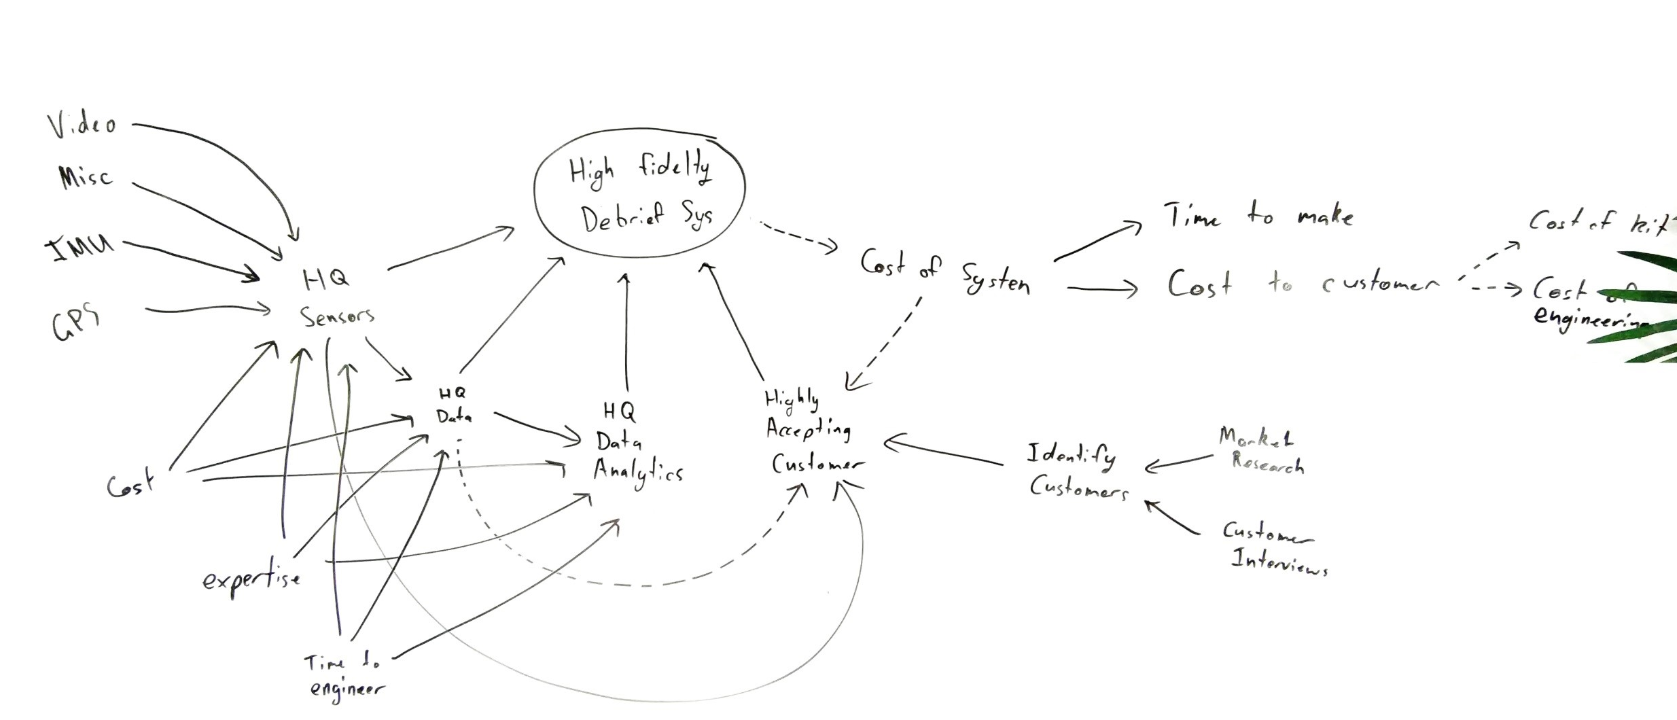 Video
Misc
IMU
GPS
HQ
Sensors
High fidelty
Debrief Sys
Cost of System
Time to make
Cost to customer
Cost of kit
Cost of
engineering
HQ
Data
HQ
Data
Analytics
Highly
Accepting
Customer
Identify
Customers
Market
Research
Customer
Interviews
Cost
expertise
Time to
engineer